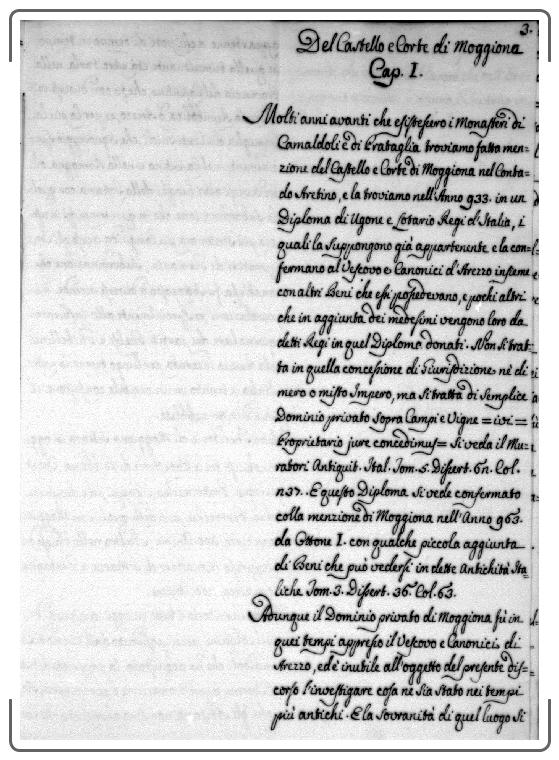 3.
Del Castello e Corte di Moggiona
Cap. I.
Molti anni avanti che esistessero i Monasterj di
Camaldoli e di Prataglia troviamo fatta men=
zione del Castello e Corte di Moggiona nel Conta=
do Aretino, e la troviamo nell'Anno 933. in un
Diploma di Ugone e Lotario Regi d'Italia, i
quali la suppongono già appartenente e la con=
fermano al Vescovo e Canonici d'Arezzo insieme
con altri Beni che essi possedevano, e pochi altri
che in aggiunta dei medesimi vengono loro da
detti Regi in quel Diploma donati. Non si trat=
ta in quella concessione di Giurisdizione nè di
mero o misto Impero, ma si tratta di semplice
Dominio privato sopra Campi e Vigne = ivi =
Proprietario jure concedimus = Si veda il Mu=
ratori Antiquit. Ital. Tom. 5. Dissert. 67. Col.
E questo Diploma si vede confermato
colla menzione di Moggiona nell'Anno 963.
da Ottone I. con qualche piccola aggiunta
di Beni che può vedersi in dette Antichità Ita=
liche Tom. 3. Dissert. 36. Col. 63.
Adunque il Dominio privato di Moggiona fù in
quei tempi appresso il Vescovo e Canonici di
Arezzo, ed è inutile all'oggetto del presente dis=
corso l'investigare cosa ne sia stato nei tempi
più antichi. E la sovranità di quel luogo si